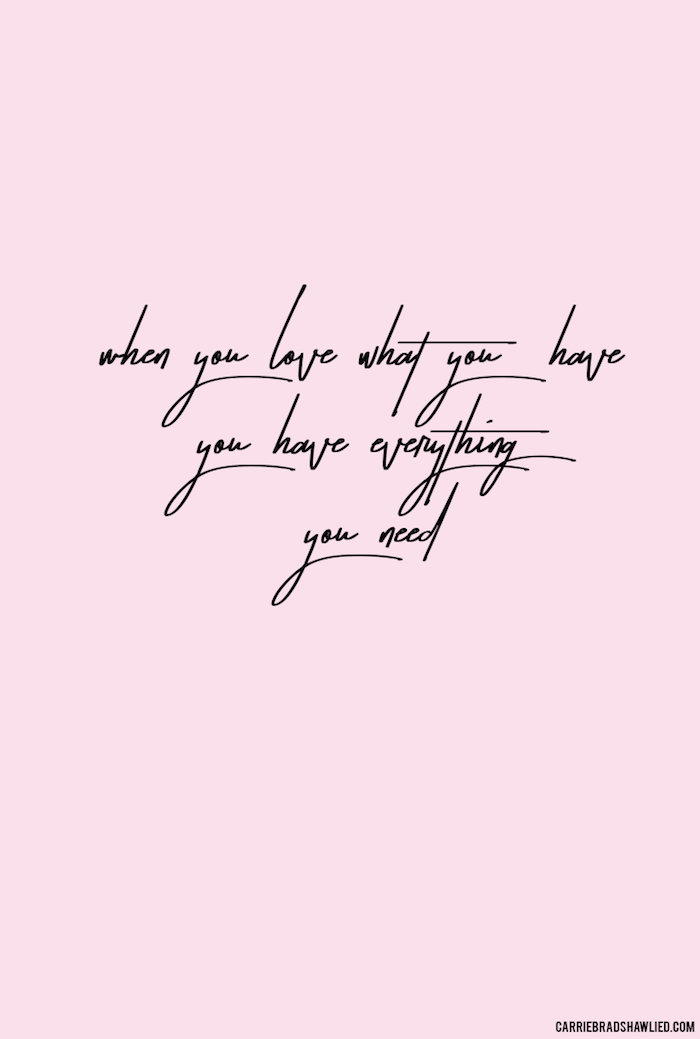 when you love what you have
you have everything
you need
CARRIEBRADSHAWLIED.COM